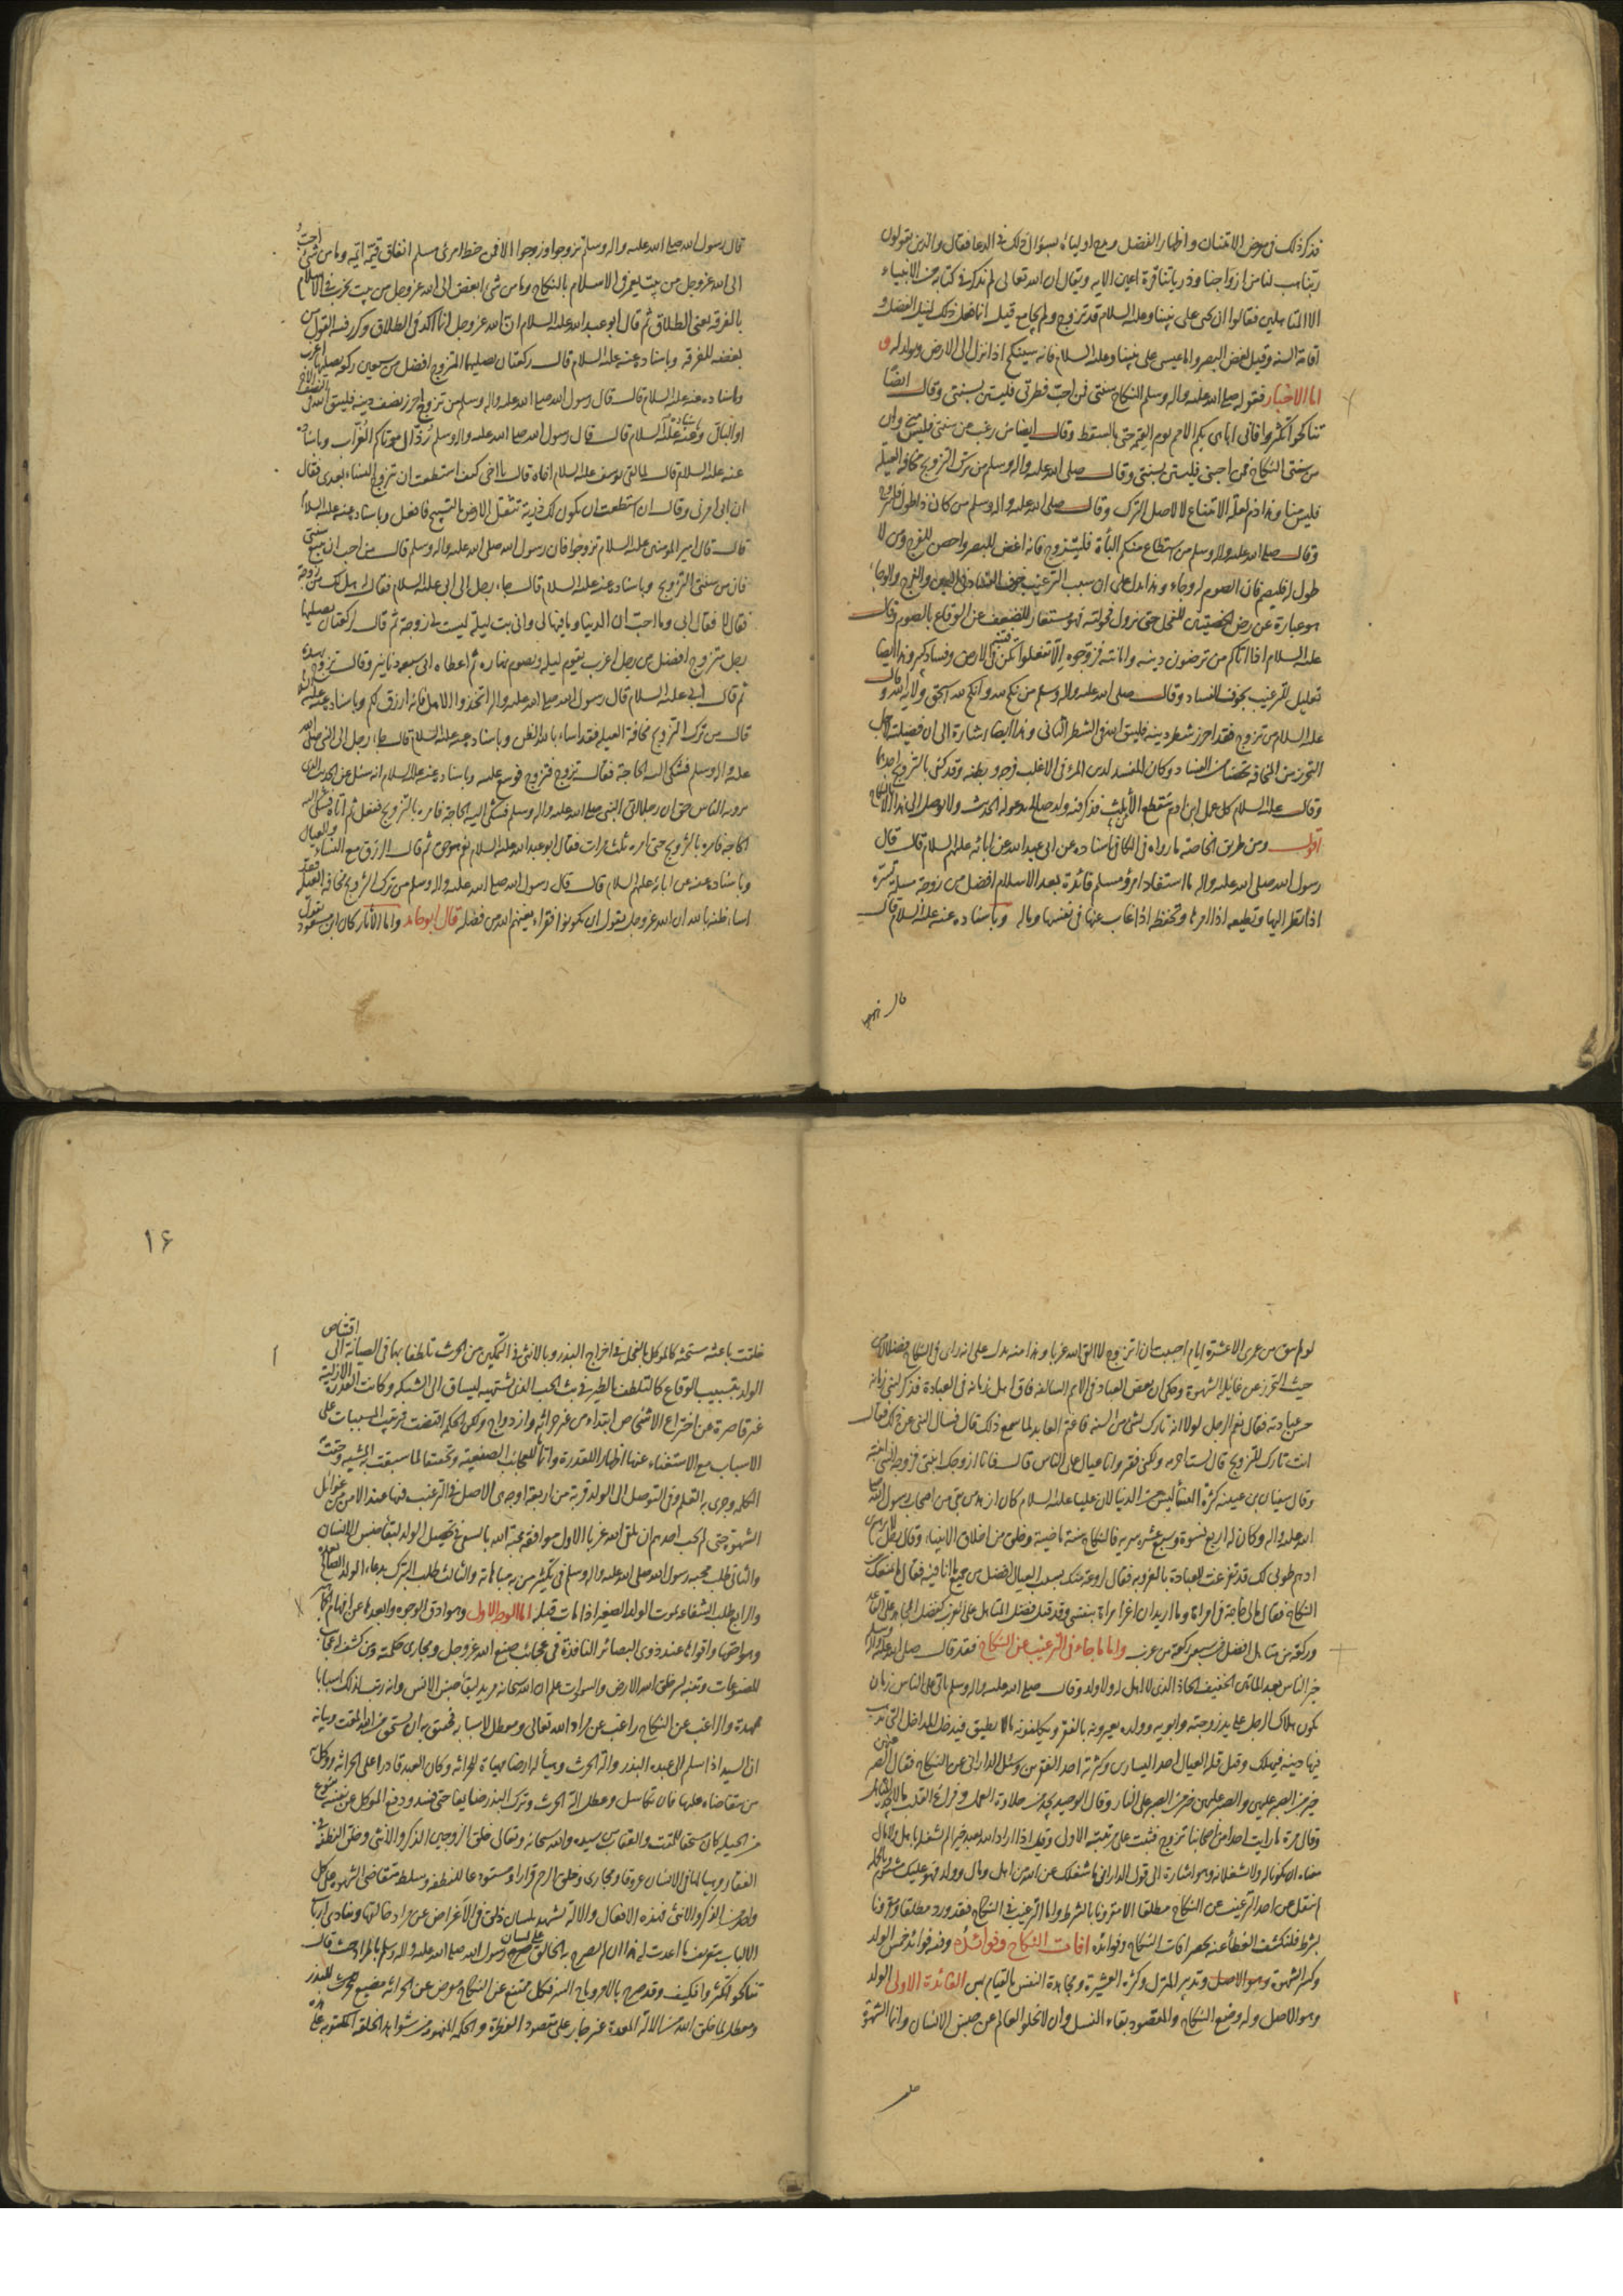 فذكر ذلك في معرض الامتنان واظهار الفضل ومدح اولياءه بسؤال ذلك في الدعا فقال والذين يقولون
ربنا هب لنا من ازواجنا وذرياتنا قرة اعين الايه ويقال ان الله تعالى لم يذكر في كتابه من الانبياء
الا المتاهلين فقالوا ان يحيى على نبينا وعليه السلام قد تزوج ولم يجامع قيل انما فعل ذلك لنيل الفضل و
اقامة السنه وقيل لغض البصر واما عيسى على نبينا وعليه السلام فانه سينكح اذا نزل الى الارض ويولد له و
اما الاخبار فقوله صلى الله عليه واله وسلم النكاح سنتي فمن احب فطرتي فليستن بسنتي وقال ايضًا
تناكحوا تكثروا فاني اباهي بكم الامم يوم القيمه حتى بالسقط وقال ايضا من رغب عن سنتي فليس مني وان
من سنتي النكاح فمن احبني فليستن بسنتي وقال صلى الله عليه واله وسلم من ترك التزويج مخافه العيله
فليس منا وهذا ذم لعله الامتناع لا لاصل الترك وقال صلى الله عليه واله وسلم من كان ذا طول فليتزوج
وقال صلى الله عليه واله وسلم من استطاع منكم البأة فليتزوج فانه اغض للبصر واحصن للفرج ومن لا
طول له فليصم فان الصوم له وجاء وهذا يدل على ان سبب الترغيب خوف الفساد في العين والفرج والوجاء
هو عبارة عن رض الخصيتين للفحل حتى يزول فحولته فهو مستعار للضعف عن الوقاع بالصوم وقال
عليه السلام اذا اتاكم من ترضون دينه وامانته فزوجوه الّا تفعلوا تكن فتنة في الارض وفساد كبير وهذا ايضا
تعليل للترغيب بخوف الفساد وقال صلى الله عليه واله وسلم من نكح لله وانكح لله استحق ولاية الله وقال
عليه السلام من تزوج فقد احرز شطر دينه فليتق الله في الشطر الثاني وهذا ايضا اشارة الى ان فضيلته لاجل
التحرز من المخالفه تحصنا من الفساد وكان المفسد لدين المرء في الاغلب فرجه وبطنه وقد كفى بالتزويج احدهما
وقال عليه السلام كل عمل ابن ادم ينقطع الا ثلث فذكر فيه ولد صالح يدعو له الحديث ولا يوصل الى هذا الا بالنكاح
اقول ومن طريق الخاصه ما رواه في الكافي باسناده عن ابي عبد الله عن ابائه عليهم السلام قال قال
رسول الله صلى الله عليه واله ما استفاد امرؤ مسلم فائدة بعد الاسلام افضل من زوجة مسلمة تسره
اذا نظر اليها وتطيعه اذا امرها وتحفظه اذا غاب عنها في نفسها وماله وباسناده عنه عليه السلام قال
قال رسول الله صلى الله عليه واله وسلم تزوجوا وزوجوا الا فمن حظ امرئ مسلم انفاق قيمة ايمة وما من شئ احب
الى الله عز وجل من بيت يعمر في الاسلام بالنكاح وما من شئ ابغض الى الله عز وجل من بيت يخرب في الاسلام
بالفرقه يعنى الطلاق ثم قال ابو عبد الله عليه السلام ان الله عز وجل انما اكد في الطلاق وكرر فيه القول من
بغضه للفرقه وباسناده عنه عليه السلام قال ركعتان يصليهما المتزوج افضل من سبعين ركعه يصليها اعزب
وباسناده عنه عليه السلام قال قال رسول الله صلى الله عليه واله وسلم من تزوج احرز نصف دينه فليتق الله في النصف الاخر
او الباقي وباسناده عنه عليه السلام قال قال رسول الله صلى الله عليه واله وسلم رُذّال موتاكم العُزّاب وباسناده
عنه عليه السلام قال لما لقي يوسف عليه السلام اخاه قال يا اخي كيف استطعت ان تزوج النساء بعدي فقال
ان ابي امرني وقال ان استطعت ان يكون لك ذرية تثقل الارض بالتسبيح فافعل وباسناده عنه عليه السلام
قال قال امير المؤمنين عليه السلام تزوجوا فان رسول الله صلى الله عليه واله وسلم قال من احب ان يتبع سنتي
فان من سنتي التزويج وباسناده عنه عليه السلام قال جاء رجل الى ابي عليه السلام فقال له هل لك من زوجة
فقال لا فقال ابي وما احب ان الدنيا وما فيها لي واني بت ليلة ليست لي زوجة ثم قال الركعتان يصليهما
رجل متزوج افضل من رجل اعزب يقوم ليله ويصوم نهاره ثم اعطاه ابي سبعة دنانير وقال تزوج بهذه
ثم قال ابي عليه السلام قال رسول الله صلى الله عليه واله اتخذوا الاهل فانه ارزق لكم وباسناده عنه عليه السلام
قال من ترك التزويج مخافة العيلة فقد اساء بالله الظن وباسناده عنه عليه السلام قال جاء رجل الى النبي صلى الله
عليه واله وسلم فشكى اليه الحاجة فقال تزوج فتزوج فوسع عليه وباسناده عنه عليه السلام انه سئل عن الحديث الذي
يرويه الناس حق ان رجلا اتى النبي صلى الله عليه واله وسلم فشكى اليه الحاجة فامره بالتزويج ففعل ثم اتاه فشكى اليه
الحاجه فامره بالتزويج حتى امره ثلث مرات فقال ابو عبد الله عليه السلام نعم هو حق ثم قال الرزق مع النساء والعيال
وباسناده عنه عن ابائه عليهم السلام قال قال رسول الله صلى الله عليه واله وسلم من ترك التزويج مخافه العيله فقد
اساء ظنه بالله ان الله عز وجل يقول ان يكونوا فقراء يغنهم الله من فضله قال ابو حامد واما الاثار كان ابن مسعود يقول
لو لم يبق من عمري الا عشرة ايام احببت ان اتزوج لا القى الله عزبا وهذا منه يدل على انه راى في النكاح فضلا من
حيث التحرز عن غايله الشهوة وحكي ان بعض العباد في الامم السالفه فاق اهل زمانه في العبادة فذكر لنبي زمانه
حسن عبادته فقال نعم الرجل لولا انه تارك لشئ من السنه فاغتم العابد لما سمع ذلك قال فسال النبي عن ذلك فقال
انت تارك للتزويج قال لست احرمه ولكني فقير وانا عيال على الناس قال فانا ازوجك ابنتي فزوجه النبي ابنته
وقال سفيان بن عيينه كثرة النساء ليس من الدنيا لان عليا عليه السلام كان ازهد من بقي من اصحاب رسول الله صلى
الله عليه واله وكان له اربع نسوة وسبع عشر سريه فالنكاح سنة ماضية وخلق من اخلاق الانبياء وقال رجل لابراهيم بن
ادهم طوبى لك قد تفرغت للعبادة بالعزوبه فقال لروعة منك بسبب العيال افضل من جميع ما انا فيه فقال فما يمنعك من
النكاح فقال ما لي حاجة في امراة وما اريد ان اغر امراة بنفسي وقد قيل فضل المتاهل على العزب كفضل المجاهد على القاعد
وركعة من متاهل افضل من سبعين ركعة من عزب واما ما جاء في الترغيب عن النكاح فقد قال صلى الله عليه واله وسلم
خير الناس بعد المائتين الخفيف الحاذ الذي لا اهل له ولا ولد وقال صلى الله عليه واله وسلم ياتي على الناس زمان
يكون هلاك الرجل على يد زوجته وابويه وولده يعيرونه بالفقر ويكلفونه ما لا يطيق فيدخل المداخل التي يذهب
فيها دينه فيهلك وقيل قلة العيال احد اليسارين وكثرته احد الفقرين وسئل الداراني عن النكاح فقال الصبر عنهن
خير من الصبر عليهن والصبر عليهن خير من الصبر على النار وقال الوحيد يجد من حلاوة العمل وفراغ القلب ما لا يجد المتاهل
وقال مرة ما رايت احدا من اصحابنا تزوج فثبت على مرتبته الاولى وقيل اذا اراد الله بعبد خيرا لم يشغله باهل ولا مال
معناه ان يكونا له ولا يشغلانه وهو اشارة الى قول الداراني ما شغلك عن الله من اهل ومال وولد فهو عليك مشئوم وبالجمله
لم ينقل عن احد الترغيب عن النكاح مطلقا الا مقرونا بالشرط واما الترغيب في النكاح فقد ورد مطلقا ومقرونا
بشرط فلنكشف الغطأ عنه بحصر افات النكاح وفوائده افات النكاح وفوائده وفيه فوائد خمس الولد
وكسر الشهوة وتدبير المنزل وكثرة العشيرة ومجاهدة النفس بالقيام بهن الفائدة الاولى الولد
وهو الاصل وله وضع النكاح والمقصود بقاء النسل وان لا يخلو العالم عن جنس الانسان وانما الشهوة
١٦
خلقت باعثه مستحثه كالموكل بالفحل في اخراج البذر وبالانثى في التمكين من الحرث تلطفا بهما في السياقه الى اقتناص
الولد بتسبيب الوقاع كالتلطف بالطير في بث الحب الذي تشتهيه ليساق الى الشبكه وكانت القدرة الازليه
غير قاصرة عن اختراع الاشخاص ابتداء من غير حراثه وازدواج ولكن الحكمه اقتضت ترتيب المسببات على
الاسباب مع الاستغناء عنها اظهارا للقدرة واتماما للعجائب الصنعيه وتحقيقا لما سبقت به المشيه وحقت به
الكلمه وجرى به القلم وفي التوصل الى الولد قربة من اربعة اوجه هي الاصل في الترغيب فيها عند الامن من غوائل
الشهوة حتى لم يحب احدهم ان يلقى الله عزبا الاول موافقه محبة الله بالسعي في تحصيل الولد لبقاء جنس الانسان
والثاني طلب محبه رسول الله صلى الله عليه واله وسلم في تكثير من به مباهاته والثالث طلب التبرك بدعاء الولد الصالح بعده
والرابع طلب الشفاعه بموت الولد الصغير اذا مات قبله اما الوجه الاول وهو ادق الوجوه وابعدها عن افهام الجماهير
وهو احقها واقواها عند ذوي البصائر النافذة في عجائب صنع الله عز وجل ومجاري حكمته
ان السيد اذا سلم الى عبده البذر والة الحرث وهيأ له ارضا مهياة للحراثه وكان العبد قادرا على الحراثه ووكل به
من يتقاضاه عليها فان تكاسل وعطل الة الحرث وترك البذر ضايعا حتى فسد ودفع الموكل عن نفسه بنوع
من الحيله كان مستحقا للمقت والعتاب من سيده والله سبحانه وتعالى خلق الزوجين الذكر والانثى وخلق النطفة في
الفقار وهيا لها في الانثيان عروقا ومجاري وخلق الرحم قرارا ومستودعا للنطفه وسلط متقاضي الشهوة على كل
واحد من الذكر والانثى فهذه الافعال والالات تشهد بلسان ذلق في الاعراض عن مراد خالقها وتنادي ارباب
الالباب بتعريف ما اعدت له هذا ان لم يصرح به الخالق على لسان رسول الله صلى الله عليه واله وسلم بالمراد حيث قال
تناكحوا تكثروا فكيف وقد صرح بالامر وباح السر فكل ممتنع عن النكاح معرض عن الحراثه مضيع للبذر
ومعطل لما خلق الله من الالة المعدة وجان على مقصود الفطرة والحكمه المفهومه من شواهد الخلقه المكتوبه على